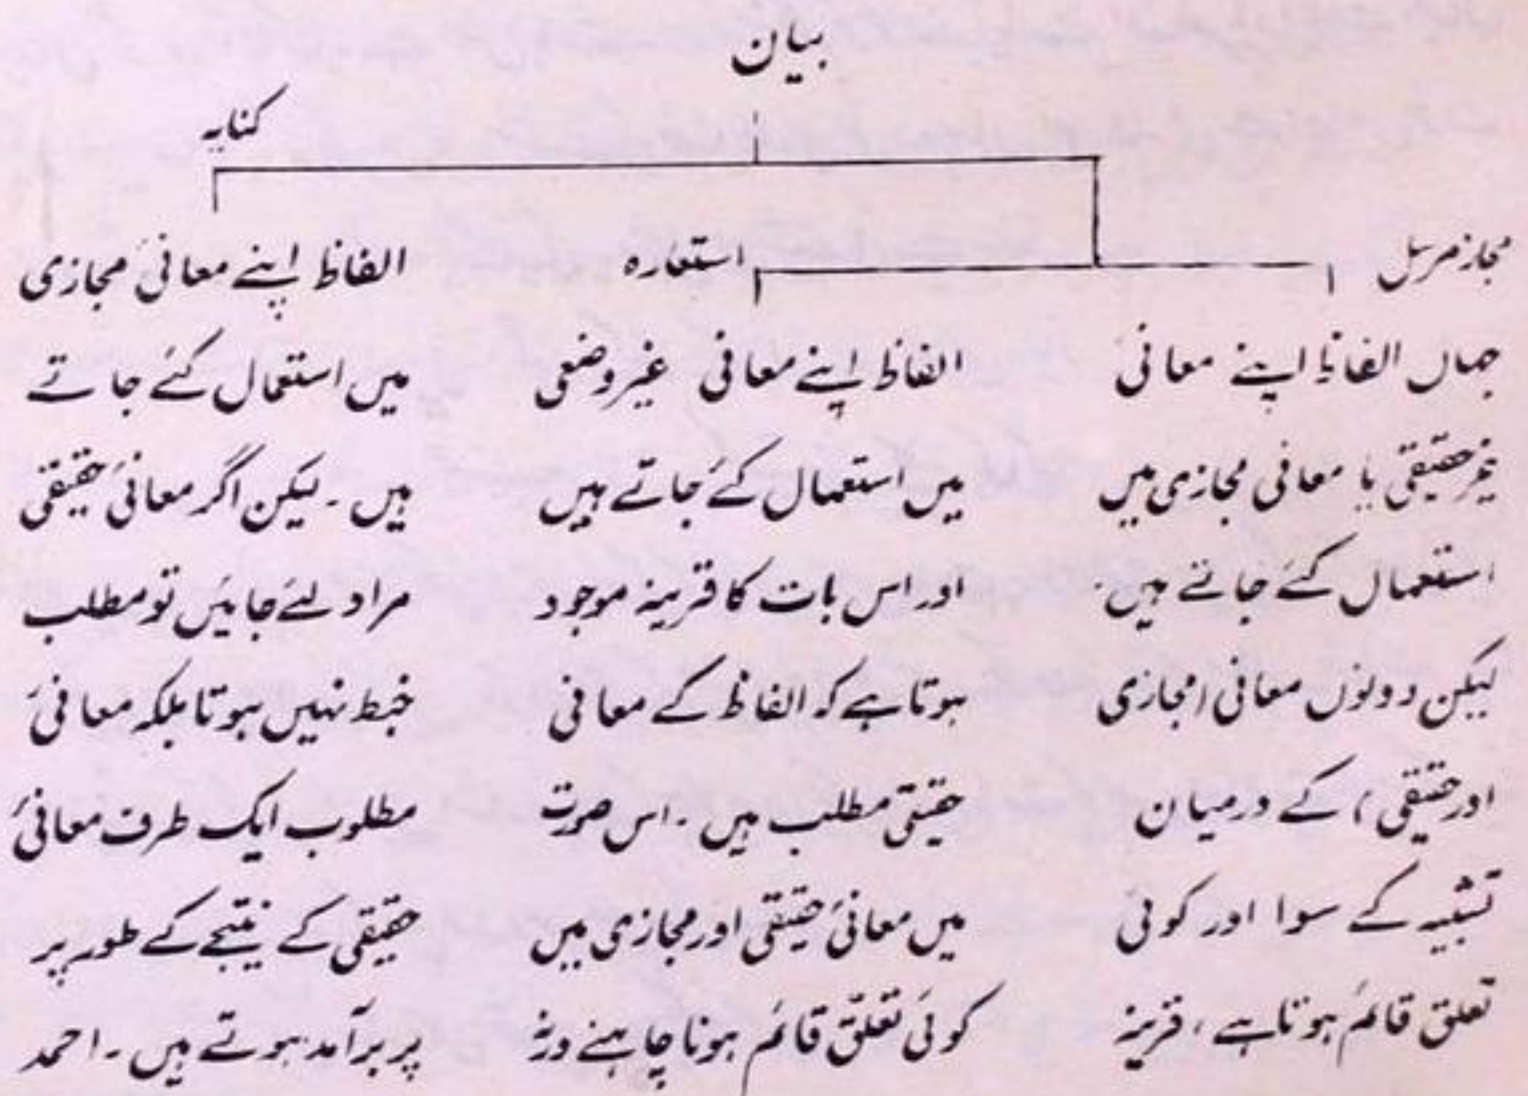 بیان
کنایہ
مجاز مرسل
جہاں الفاظ اپنے معانی
غیر حقیقی یا معانی مجازی میں
استعمال کئے جاتے ہیں۔
لیکن دونوں معانی (مجازی
اور حقیقی) کے درمیان
تشبیہ کے سوا اور کوئی
تعلق قائم ہوتا ہے، قرینہ
استعارہ
الفاظ اپنے معانی غیر وضعی
میں استعمال کئے جاتے ہیں
اور اس بات کا قرینہ موجود
ہوتا ہے کہ الفاظ کے معانی
حقیقی مطلب ہیں۔ اس صورت
میں معانیٔ حقیقی اور مجازی میں
کوئی تعلق قائم ہونا چاہئے ورنہ
الفاظ اپنے معانیٔ مجازی
میں استعمال کئے جاتے
ہیں۔ لیکن اگر معانیٔ حقیقی
مراد لئے جائیں تو مطلب
خبط نہیں ہوتا بلکہ معانیٔ
مطلوب ایک طرف معانیٔ
حقیقی کے نتیجے کے طور پر
پر برآمد ہوتے ہیں۔ احمد